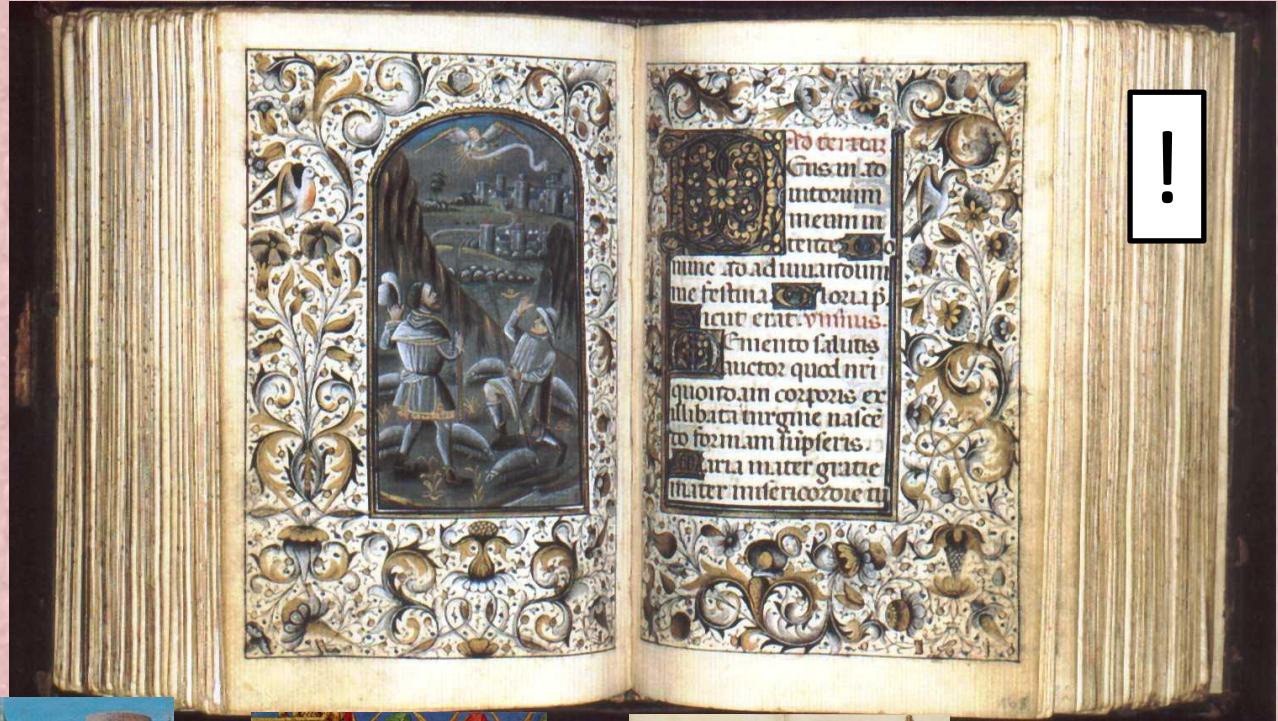 Ad tertiaz
Deus in ad
iutorium
meum in
tende. Do
mine ad adiuuandum
me festina. Gloria p̄.
Sicut erat. ymnus.
Memento salutis
auctor quod nr̄i
quondam corporis ex
illibata uirgine nascē
do formam sūpseris.
Maria mater gratie
mater misericordie tu
!